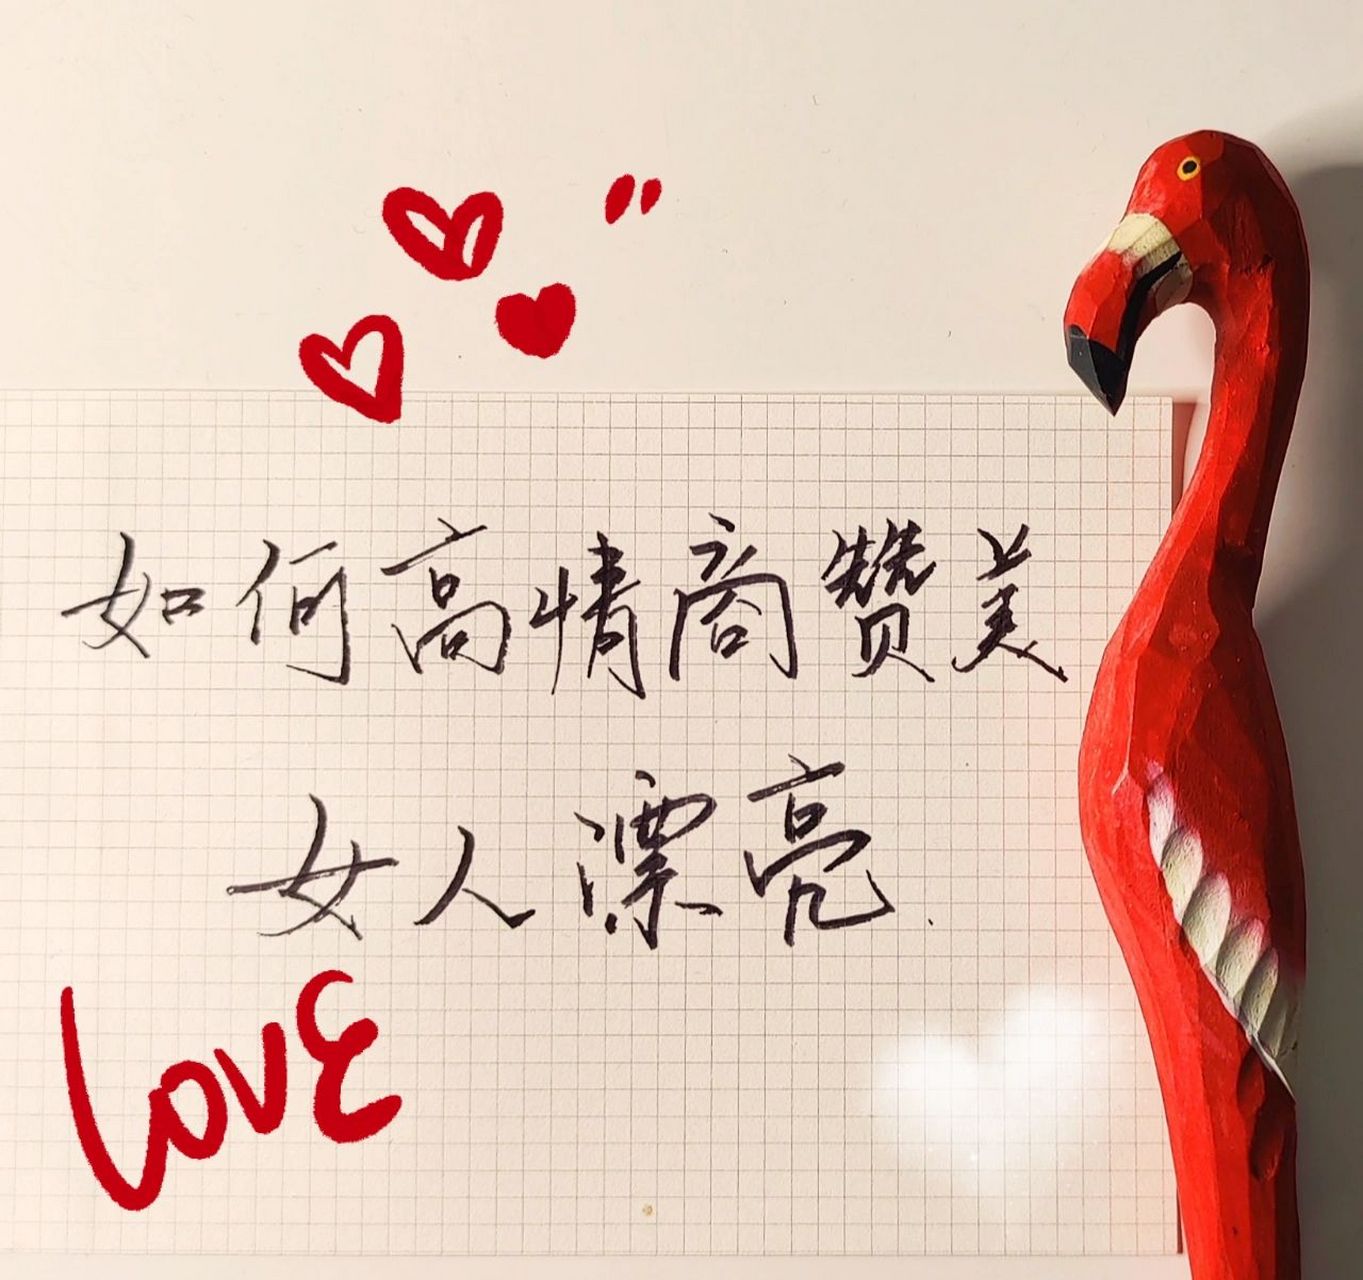 如何高情商赞美
女人漂亮.
LOVE